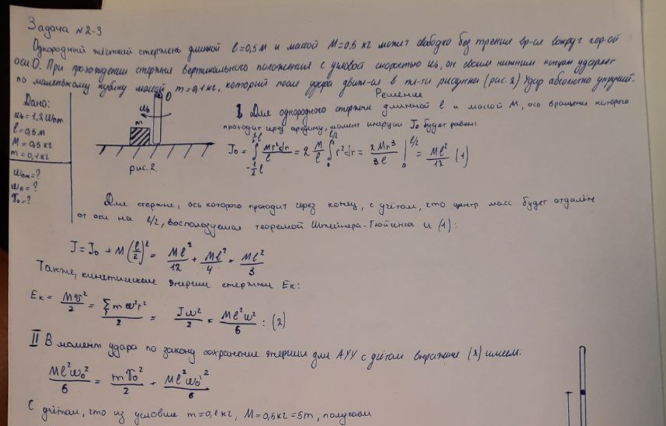 Задача №2-3
Однородный жёсткий стержень длиной l=0,5м и массой M=0,5кг может свободно без трения вр-ся вокруг гор-ой
оси О. При прохождении стержня вертикального положения с угловой скоростью ω₀, он своим нижним концом ударяет
по маленькому кубику массой m=0,1кг, который после удара движ-ся в пл-ти рисунка (рис.2) Удар абсолютно упругий.
Решение
Дано:
l=0,5м
M=0,5кг
m=0,1кг
ω₀
m
O
рис.2
I Для однородного стержня длиной l и массой M, ось вращения которого
проходит через середину, момент инерции J₀ будет равен
J₀ = ∫ Mr²dr/l = 2 M/l ∫ r²dr = 2Mr³/3l |₀^(l/2) = Ml²/12 (1)
Для стержня, ось которого проходит через конец, с учётом, что центр масс будет отдалён
от оси на l/2, воспользуемся теоремой Штейнера-Гюйгенса и (1):
J = J₀ + M(l/2)² = Ml²/12 + Ml²/4 = Ml²/3
Также, кинетическая энергия стержня Eк:
Eк = Mv²/2 = Σmω²r²/2 = Jω²/2 = Ml²ω²/6 : (2)
II В момент удара по закону сохранения энергии для АУУ с учётом выражения (2) имеем:
Ml²ω₀²/6 = mv₀²/2
С учётом, что из условия m=0,1кг, M=0,5кг=5m, получаем